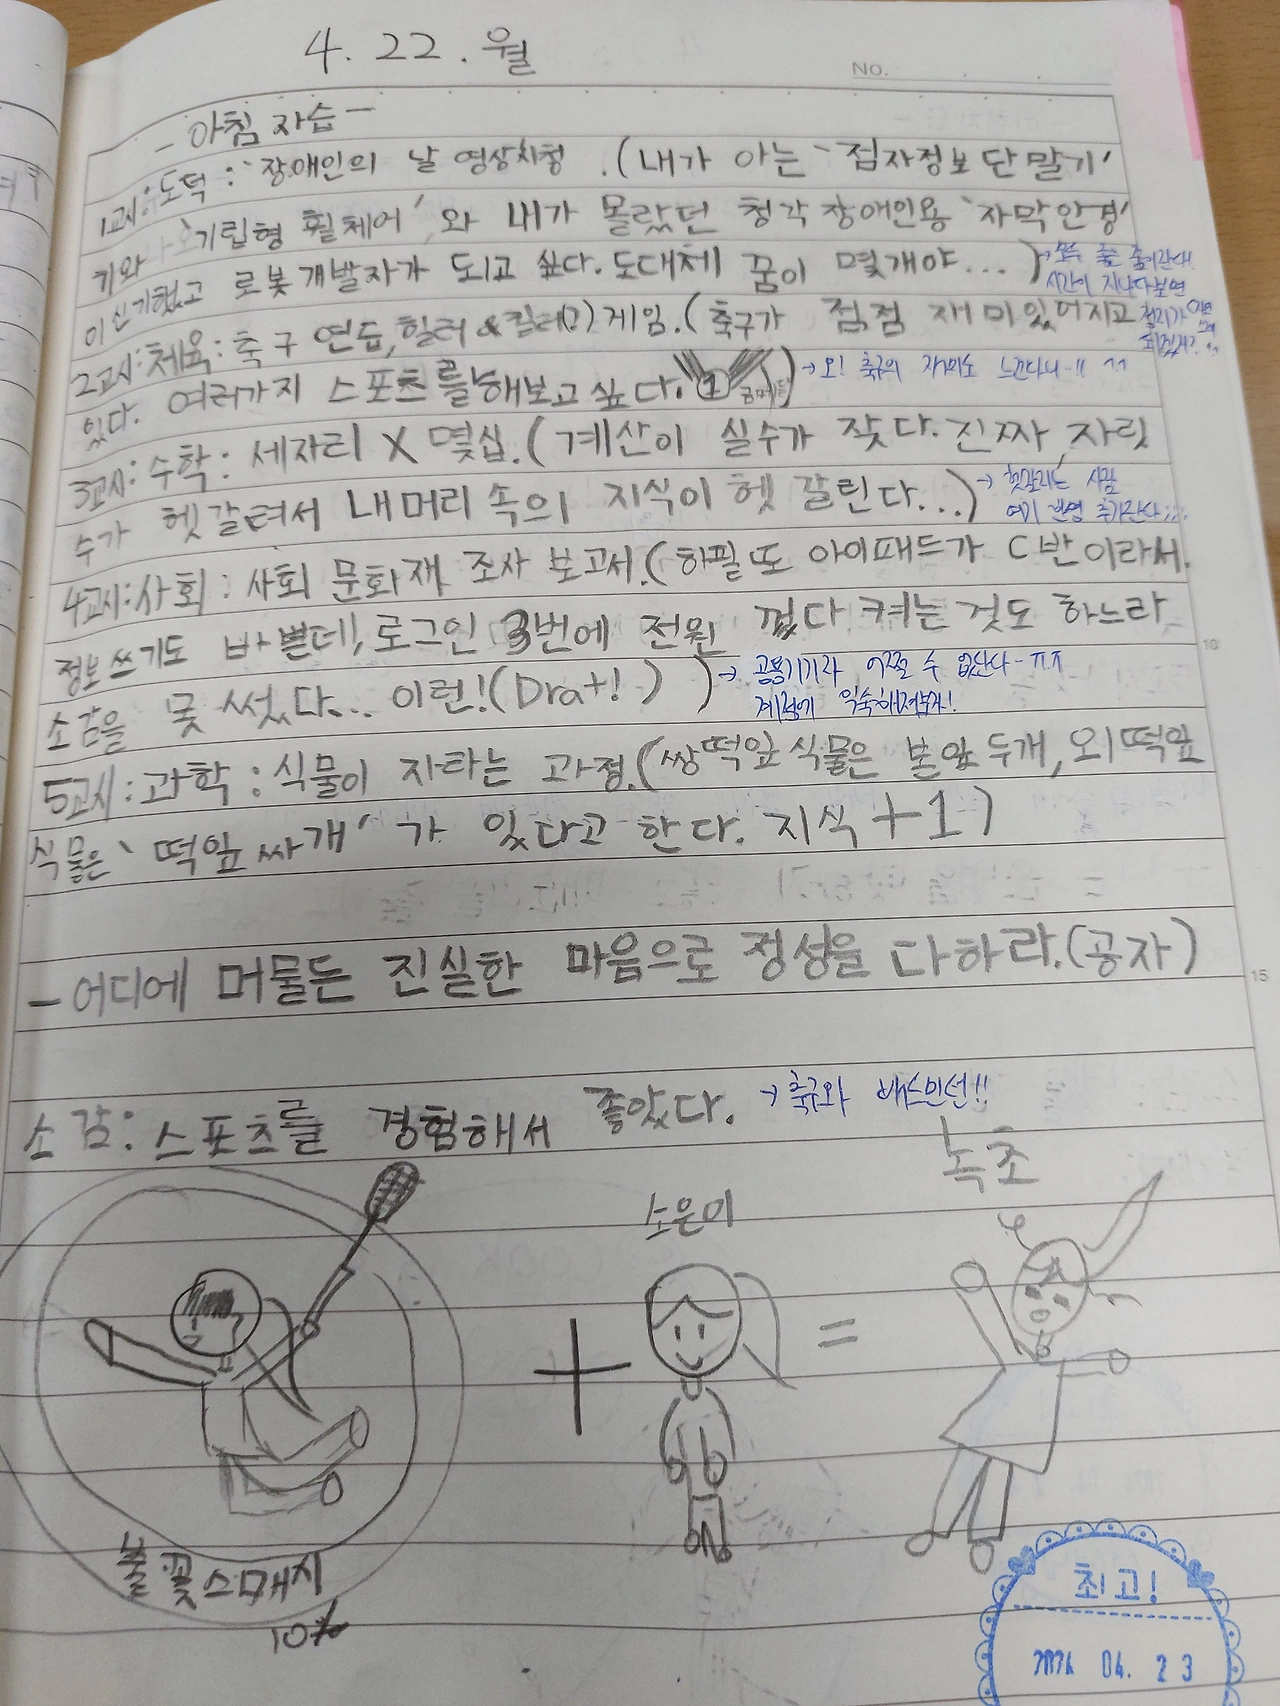 4. 22. 월
NO.
- 아침 자습 -
1교시: 도덕: '장애인의 날 영상시청. (내가 아는 '점자정보 단말기'
키와 '기립형 휠체어'와 내가 몰랐던 청각장애인용 '자막안경'
이 신기했고 로봇 개발자가 되고 싶다. 도대체 꿈이 몇개야...)
시간이 지나다보면
2교시: 체육: 축구 연습, 힐러&킬러(?)게임. (축구가 점점 재미있어지고
있다. 여러가지 스포츠를 해보고 싶다. 1)
→ 오! 축구의 재미도 느낀다니-!! ^^
3교시: 수학: 세자리 X 몇십. (계산이 실수가 잦다. 진짜, 자릿
수가 헷갈려서 내머리 속의 지식이 헷갈린다...)
→ 헷갈리는 사람
여기 한명 추가한다;;;
4교시: 사회: 사회 문화재 조사 보고서. (하필 또 아이패드가 C반이라서.
정보 쓰기도 바쁜데!, 로그인 3번에 전원 껐다 켜는 것도 하느라
소감을 못 썼다... 이런!(Drat!))
→ 공용기기라 어쩔 수 없단다-ㅠㅠ
계정에 익숙해져보자!
5교시: 과학: 식물이 자라는 과정. (쌍떡잎 식물은 본잎 두개, 외떡잎
식물은 '떡잎싸개'가 있다고 한다. 지식+1)
- 어디에 머물든 진실한 마음으로 정성을 다하라. (공자)
소감: 스포츠를 경험해서 좋았다.
→ 축구와 배드민턴!!
녹초
소은이
+
=
불꽃스매시
10%
최고!
2024 04. 23
15
10